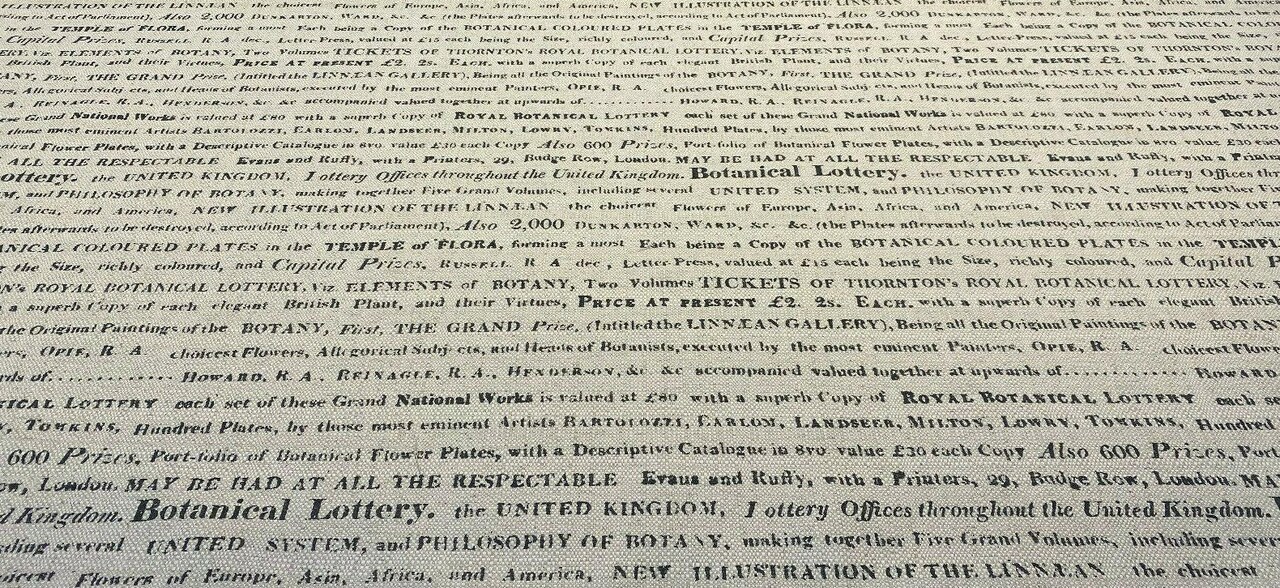 ILLUSTRATION OF THE LINNÆAN the choicest Flowers of Europe, Asia, Africa, and America, NEW ILLUSTRATION OF THE LINNÆAN the choicest Flowers of Europe, Asia, Africa, and
Act of Parliament), Also 2,000 DUNKARTON, WARD, &c. &c. (the Plates afterwards to be destroyed, according to Act of Parliament), Also 2,000 DUNKARTON, WARD, &c. &c. (the Plates afterwards
in the TEMPLE of FLORA, forming a most Each being a Copy of the BOTANICAL COLOURED PLATES in the TEMPLE of FLORA, forming a most Each being a Copy of the BOTANICAL
Capital Prizes, RUSSELL. R A dec, Letter-Press, valued at £15 each being the Size, richly coloured, and Capital Prizes, RUSSELL. R A dec, Letter-Press, valued at £15 each being the Size,
ELEMENTS of BOTANY, Two Volumes TICKETS OF THORNTON'S ROYAL BOTANICAL LOTTERY, Viz ELEMENTS of BOTANY, Two Volumes TICKETS OF THORNTON'S
British Plant, and their Virtues, PRICE AT PRESENT £2. 2s. EACH. with a superb Copy of each elegant British Plant, and their Virtues, PRICE AT PRESENT £2. 2s. EACH. with a
First, THE GRAND Prize, (Intitled the LINNÆAN GALLERY), Being all the Original Paintings of the BOTANY, First, THE GRAND Prize, (Intitled the LINNÆAN GALLERY), Being all the
Allegorical Subj cts, and Heads of Botanists, executed by the most eminent Painters, OPIE, R. A choicest Flowers, Allegorical Subj cts, and Heads of Botanists, executed by the most eminent
REINAGLE, R. A., HENDERSON, &c &c accompanied valued together at upwards of............ HOWARD, R. A., REINAGLE, R. A., HENDERSON, &c &c accompanied valued together at
these Grand National Works is valued at £80 with a superb Copy of ROYAL BOTANICAL LOTTERY each set of these Grand National Works is valued at £80 with a superb Copy of ROYAL
those most eminent Artists BARTOLOZZI, EARLOM, LANDSEER, MILTON, LOWRY, TOMKINS, Hundred Plates, by those most eminent Artists BARTOLOZZI, EARLOM, LANDSEER,
Flower Plates, with a Descriptive Catalogue in 8vo value £30 each Copy Also 600 Prizes, Port-folio of Botanical Flower Plates, with a Descriptive Catalogue in 8vo value £30 each
ALL THE RESPECTABLE Evans and Ruffy, with a Printers, 29, Budge Row, London. MAY BE HAD AT ALL THE RESPECTABLE Evans and Ruffy, with a
ottery. the UNITED KINGDOM, I ottery Offices throughout the United Kingdom. Botanical Lottery. the UNITED KINGDOM, I ottery Offices
M, and PHILOSOPHY OF BOTANY, making together Five Grand Volumes, including several UNITED SYSTEM, and PHILOSOPHY OF BOTANY, making together
Africa, and America, NEW ILLUSTRATION OF THE LINNÆAN the choicest Flowers of Europe, Asia, Africa, and America, NEW ILLUSTRATION OF
afterwards to be destroyed, according to Act of Parliament), Also 2,000 DUNKARTON, WARD, &c. &c. (the Plates afterwards to be destroyed, according to Act of
ANICAL COLOURED PLATES in the TEMPLE of FLORA, forming a most Each being a Copy of the BOTANICAL COLOURED PLATES in the TEMPL
the Size, richly coloured, and Capital Prizes, RUSSELL. R A dec, Letter-Press, valued at £15 each being the Size, richly coloured, and Capital P
N'S ROYAL BOTANICAL LOTTERY, Viz ELEMENTS of BOTANY, Two Volumes TICKETS OF THORNTON'S ROYAL BOTANICAL LOTTERY, Viz
a superb Copy of each elegant British Plant, and their Virtues, PRICE AT PRESENT £2. 2s. EACH. with a superb Copy of each elegant British
the Original Paintings of the BOTANY, First, THE GRAND Prize, (Intitled the LINNÆAN GALLERY), Being all the Original Paintings of the BOTAN
ers, OPIE, R. A choicest Flowers, Allegorical Subj cts, and Heads of Botanists, executed by the most eminent Painters, OPIE, R. A. choicest Flowe
rds of............ HOWARD, R. A., REINAGLE, R. A., HENDERSON, &c &c accompanied valued together at upwards of............ HOWARD
ICAL LOTTERY each set of these Grand National Works is valued at £80 with a superb Copy of ROYAL BOTANICAL LOTTERY each se
TOMKINS, Hundred Plates, by those most eminent Artists BARTOLOZZI, EARLOM, LANDSEER, MILTON, LOWRY, TOMKINS, Hundred
600 Prizes, Port-folio of Botanical Flower Plates, with a Descriptive Catalogue in 8vo value £30 each Copy Also 600 Prizes, Port
ow, London. MAY BE HAD AT ALL THE RESPECTABLE Evans and Ruffy, with a Printers, 29, Budge Row, London. MA
d Kingdom. Botanical Lottery. the UNITED KINGDOM, I ottery Offices throughout the United Kingdom.
uding several UNITED SYSTEM, and PHILOSOPHY OF BOTANY, making together Five Grand Volumes, including sever
oicest Flowers of Europe, Asia, Africa, and America, NEW ILLUSTRATION OF THE LINNÆAN the choicest